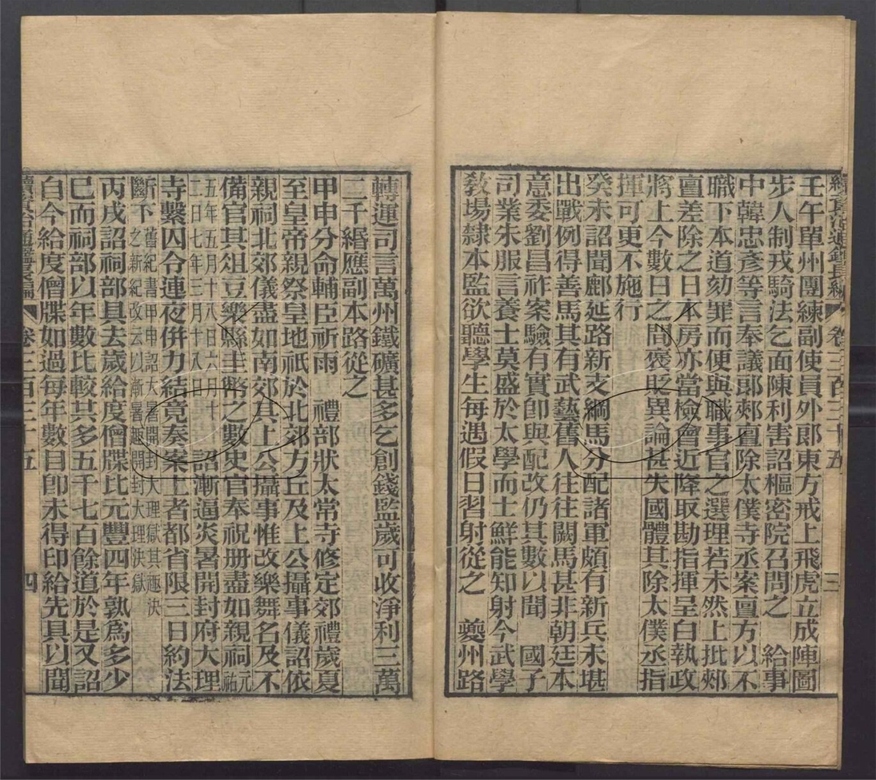 續資治通鑑長編 卷三百三十五 三
壬午單州團練副使員外郎東方戒上飛虎立成陣圖
步人制戎騎法乞面陳利害詔樞密院召問之 給事
中韓忠彥等言奉議郎郟亶除太僕寺丞案亶方以不
職下本道劾罪而便與職事官之選理若未然上批郟
亶差除之日本房亦當檢會近降取勘指揮呈白執政
將上今數日之間褒貶異論甚失國體其除太僕丞指
揮可更不施行
癸未詔聞鄜延路新支綱馬分配諸軍頗有新兵未堪
出戰例得善馬其有武藝舊人往往闕馬甚非朝廷本
意委劉昌祚案驗有實卽與配改仍具數以聞 國子
司業朱服言養士莫盛於太學而士鮮能知射今武學
敎場隸本監欲聽學生每遇假日習射從之 夔州路
轉運司言萬州鐵礦甚多乞創錢監歲可收淨利三萬
二千緡應副本路從之
甲申分命輔臣祈雨 禮部狀太常寺修定郊禮歲夏
至皇帝親祭皇地祇於北郊方丘及上公攝事儀詔依
親祠北郊儀盡如南郊其上公攝事惟改樂舞名及不
備官其俎豆樂縣圭幣之數史官奉祝册盡如親祠元祐
五年五月十八日六月十
二日七年三月十八日 詔漸逼炎暑開封府大理
寺繫囚令連夜併力結竟奏案上者都省限三日約法
斷下舊紀書甲申詔大暑開封大理獄其趣決
之新紀改云以漸暑趣開封大理決獄
丙戌詔祠部具去歲給度僧牒比元豐四年孰爲多少
已而祠部以年數比較其多五千七百餘道於是又詔
自今給度僧牒如過每年數目卽未得印給先具以聞
續資治通鑑長編 卷三百三十五 四